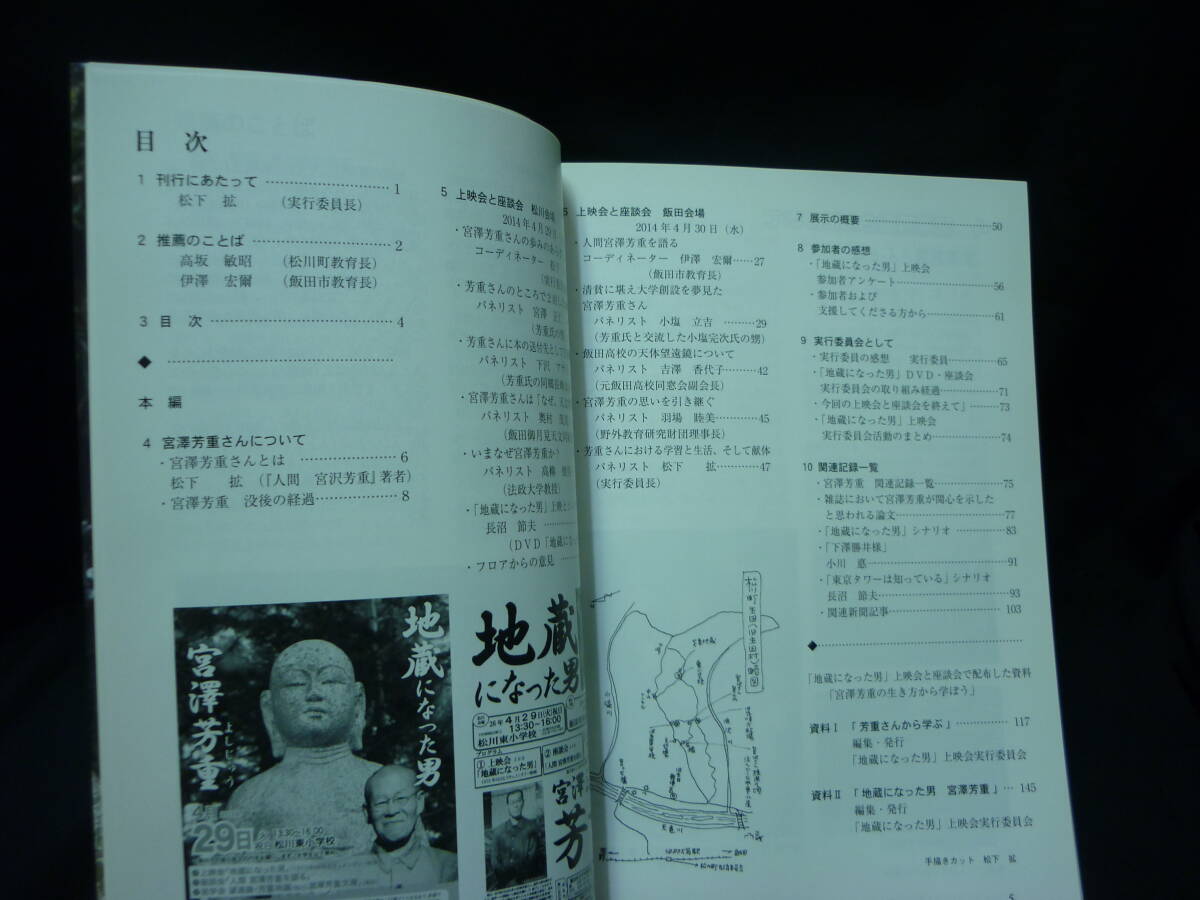 目 次
1 刊行にあたって …………………… 1
松下 拡 (実行委員長)
2 推薦のことば …………………… 2
高坂 敏昭 (松川町教育長)
伊澤 宏爾 (飯田市教育長)
3 目 次 …………………… 4
◆ ……………………
本 編
4 宮澤芳重さんについて
・宮澤芳重さんとは …………………… 6
松下 拡 (『人間 宮沢芳重』著者)
・宮澤芳重 没後の経過 …………………… 8
5 上映会と座談会 松川会場
2014年4月29日
・宮澤芳重さんの歩みの
コーディネーター
・芳重さんのところで
パネリスト 宮澤
・芳重さんに本の送付先として
パネリスト 下沢
(芳重氏の同郷
・宮澤芳重さんは「なぜ、
パネリスト 奥村
(飯田御月見天文
・いまなぜ宮澤芳重か?
パネリスト 高柳
(法政大学教授)
・「地蔵になった男」上映と
長沼 節夫 ………
(DVD「地蔵になっ
・フロアからの意見 ……
上映会と座談会 飯田会場
2014年4月30日(水)
・人間宮澤芳重を語る
コーディネーター 伊澤 宏爾……27
(飯田市教育長)
・清貧に堪え大学創設を夢見た
宮澤芳重さん
パネリスト 小塩 立吉 ………29
(芳重氏と交流した小塩完次氏の甥)
・飯田高校の天体望遠鏡について
パネリスト 吉澤 香代子………42
(元飯田高校同窓会副会長)
・宮澤芳重の思いを引き継ぐ
パネリスト 羽場 睦美…………45
(野外教育研究財団理事長)
・芳重さんにおける学習と生活、そして献体
パネリスト 松下 拡 …………47
(実行委員長)
7 展示の概要 …………………… 50
8 参加者の感想
・「地蔵になった男」上映会
参加者アンケート……………… 56
・参加者および
支援してくださる方から………… 61
9 実行委員会として
・実行委員の感想 実行委員………… 65
・「地蔵になった男」DVD・座談会
実行委員会の取り組み経過………… 71
・今回の上映会と座談会を終えて」…… 73
・「地蔵になった男」上映会
実行委員会活動のまとめ………… 74
10 関連記録一覧
・宮澤芳重 関連記録一覧………… 75
・雑誌において宮澤芳重が関心を示した
と思われる論文………………… 77
・「地蔵になった男」シナリオ ……… 83
・「下澤勝井様」
小川 悳 ………………… 91
・「東京タワーは知っている」シナリオ
長沼 節夫………………… 93
・関連新聞記事 ……………… 103
◆……………………
「地蔵になった男」上映会と座談会で配布した資料
「宮澤芳重の生き方から学ぼう」
資料Ⅰ 「芳重さんから学ぶ」 ……… 117
編集・発行
「地蔵になった男」上映会実行委員会
資料Ⅱ 「地蔵になった男 宮澤芳重」… 145
編集・発行
「地蔵になった男」上映会実行委員会
手描きカット 松下 拡
5
地蔵になった男
宮澤芳重
よしじゅう
29日
13:30~16:00
松川東小学校
地蔵
になった男
26年4月29日(火)(祝)
13:30~16:00
松川東小学校
プログラム
①上映会
「地蔵になった男」
②座談会
宮澤芳